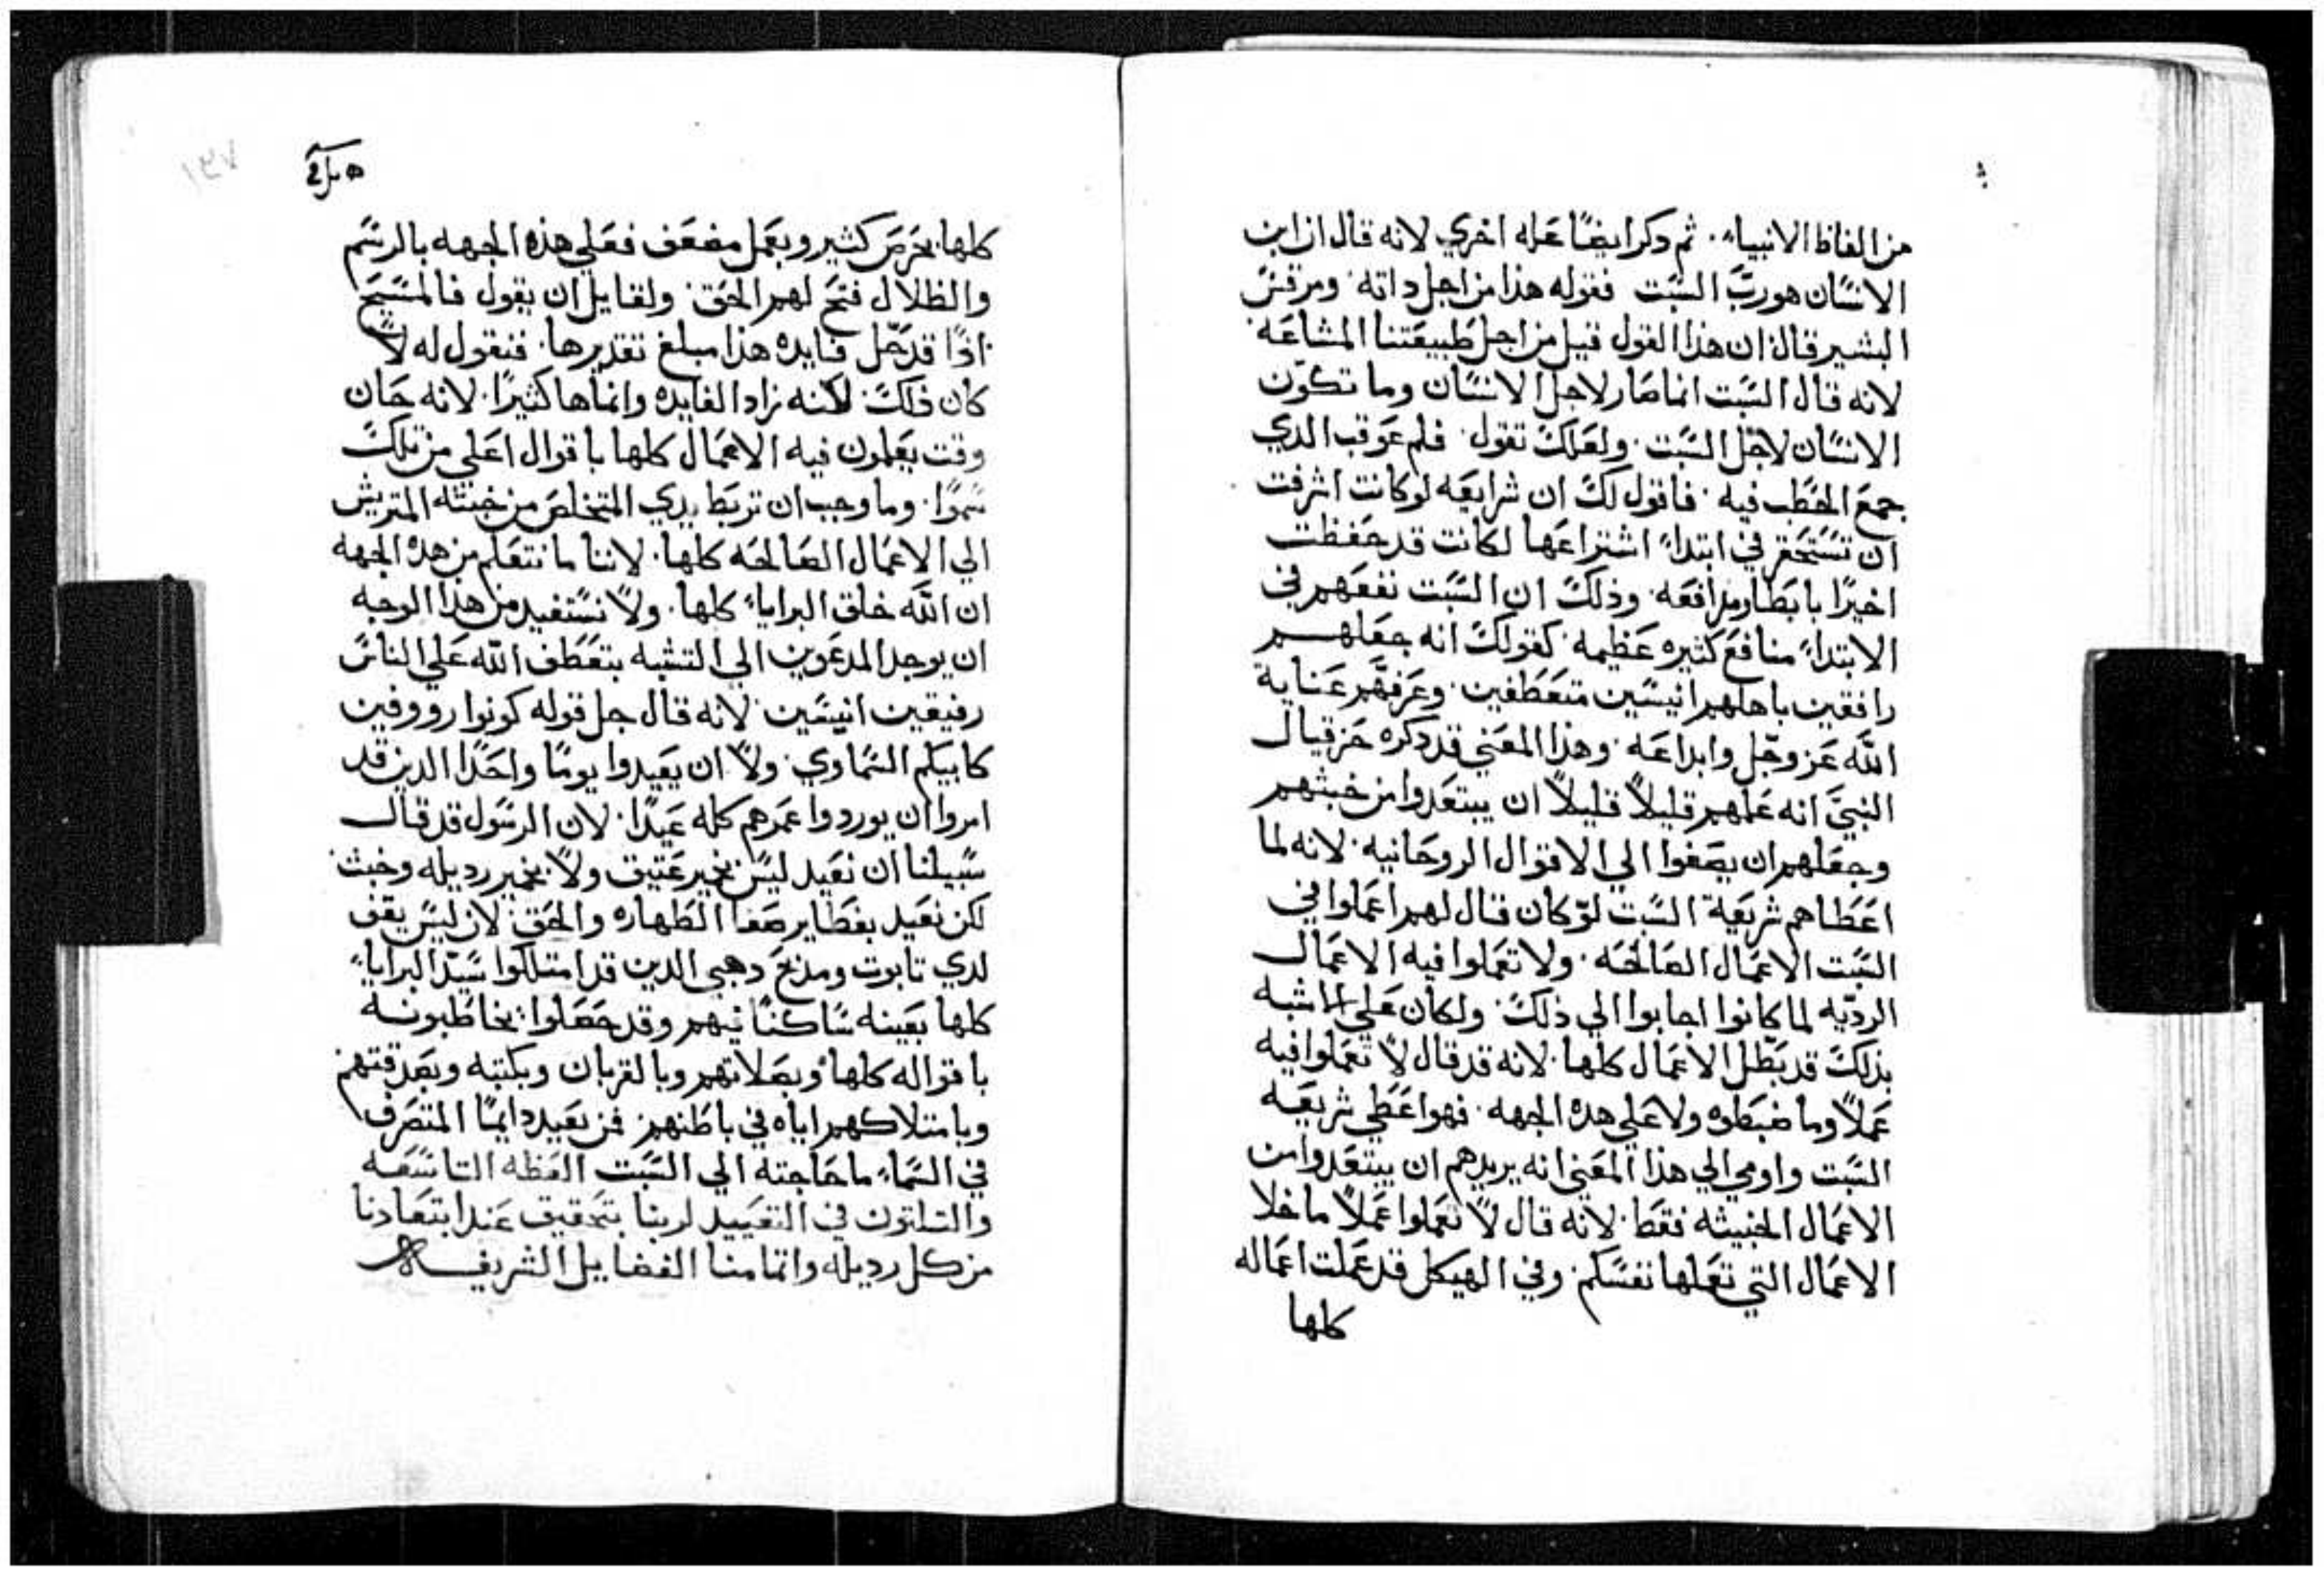 من الفاظ الانبياء. ثم دكر ايضًا عله اخري لانه قال ان ابن
الانسان هو ربّ السبت فقوله هذا من اجل داته. ومرقس
البشير قال ان هذا القول قيل من اجل طبيعتنا المشاعه
لانه قال السبت انما صار لاجل الانسان وما تكوّن
الانسان لاجل السبت. ولعلك تقول. فلم عوقب الدي
جمع الحطب فيه. فاقول لك ان شرايعه لو كانت اشرفت
ان تستحقر في ابتداء اشتراعها لكانت قد حفظت
اخيرًا بابطاومدافعه. وذلك ان السبت نفعهم في
الابتداء منافع كثيره عظيمه. كقولك انه جعلهم
رافقين باهلهم انيسين متعطفين. وعرفهم عناية
الله عز وجل وابداعه. وهذا المعني قد دكره حزقيال
النبيّ انه علمهم قليلاً قليلاً ان يبتعدوا من خبثهم
وجعلهم ان يصغوا الي الاقوال الروحانيه. لانه لما
اعطاهم شريعة السبت لو كان قال لهم اعملوا في
السبت الاعمال الصالحه. ولا تعملوا فيه الاعمال
الرديّه لما كانوا اجابوا الي ذلك. ولكان علي الاشبه
بذلك قد بطّل الاعمال كلها. لانه قد قال لا تعملوا فيه
عملاً وما ضبطوه ولا علي هده الجهه. فهو اعطي شريعه
السبت واومي الي هذا المعني انه يريدهم ان يبتعدوا من
الاعمال الخبيثه فقط. لانه قال لا تعملوا عملاً ما خلا
الاعمال التي تعملها نفسكم. وفي الهيكل قد عملت اعماله
كلها
كلها. بحرص كثير وبعمل مضعف فعلي هذه الجهه بالرسم
والظلال فتح لهم الحق. ولقايل ان يقول فالمسيح
اذًا قد حّل فايده هذا مبلغ تقديرها. فنقول له لا
كان ذلك. لكنه زاد الفايده وانماها كثيرًا. لانه حان
وقت يعملون فيه الاعمال كلها باقوال اعلي من تلك
سموًا. وما وجب ان تربط يدي المتخلص من خبثه المتريش
الي الاعمال الصالحه كلها. لاننا ما نتعلم من هده الجهه
ان الله خلق البرايا كلها. ولا نستفيد من هدا الوجه
ان يوجد المدعوين الي التشبه بتعطف الله علي الناس
رفيقين انيسين. لانه قال جل قوله كونوا رووفين
كابيكم السماوي. ولا ان يعيدوا يومًا واحدًا الدين قد
امروا ان يوردوا عمرهم كله عيدًا. لان الرسول قد قال
سبيلنا ان نعيد ليس بخير عتيق ولا بخمير رديله وخبث
لكن نعيد بفطاير صفا الطهاره والحق. لان ليس يقف
لدي تابوت ومدبح دهبي الدين قد امتلكوا سيّد البرايا
كلها بعينه ساكنًا فيهم وقد جعلوا يخاطبونه
باقواله كلها وبصلاتهم وبالقربان وبكتبه وبصدقتهم
وبامتلاكهم اياه في باطنهم. فمن يعيد دايمًا المتصرف
في السماء ما حاجته الي السبت العظه التاسعه
والتلتون في التعييد لربنا بتحقيق عند ابتعادنا
من كل رديله واتمامنا الفضايل الشريفه